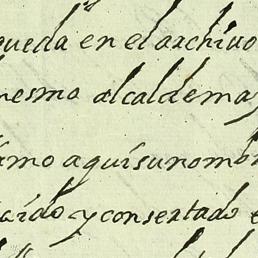 queda en el archivo
mesmo alcalde ma
aqui su nombr
y consertado e